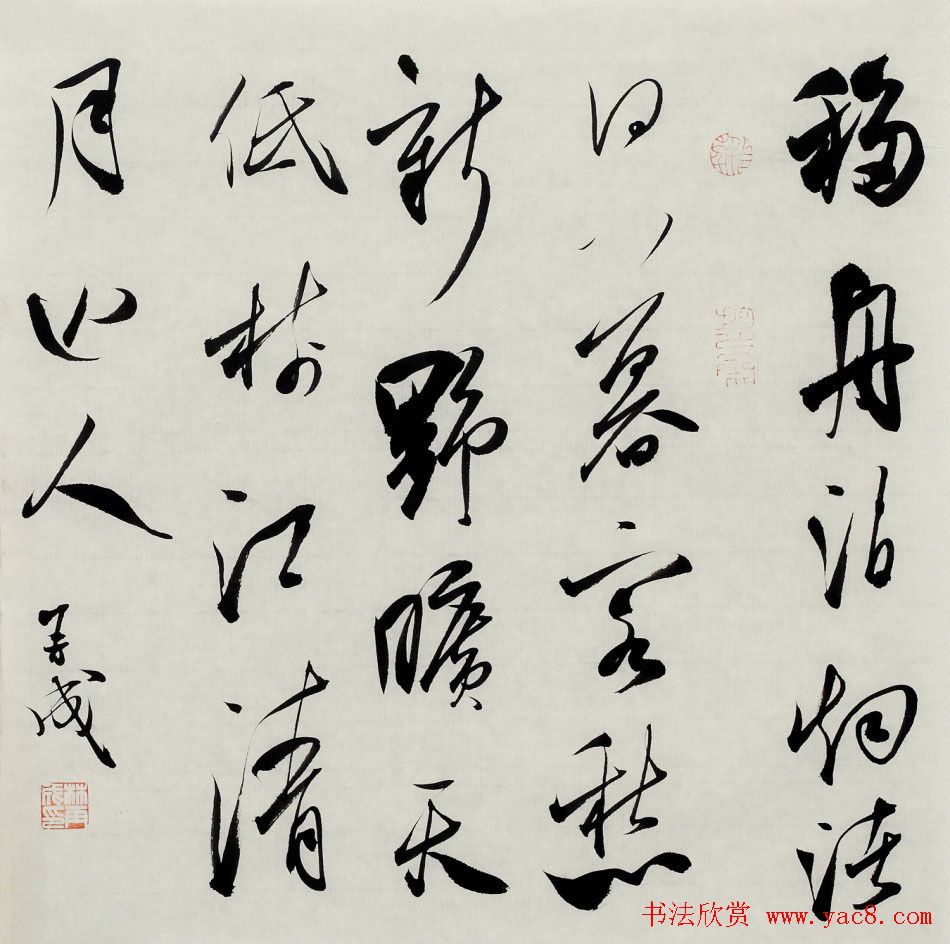 移舟泊烟渚
日暮客愁
新野曠天
低树江清
月近人
再成
林再成印
书法欣赏 www.yac8.com